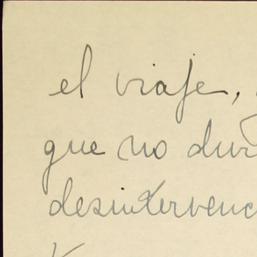 el viaje,
que no dur
desintervenc